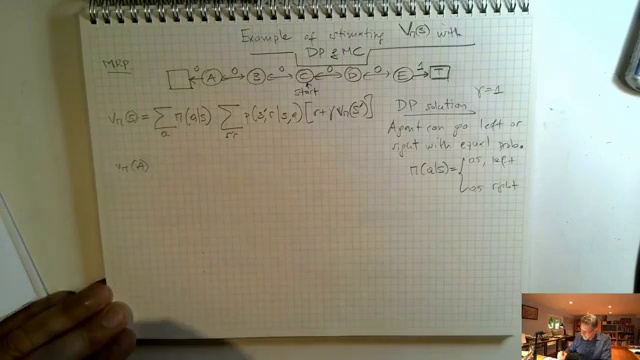 Example of estimating Vπ(s) with
DP & MC
MRP
0 A 0 B 0 C 0 D 0 E 1 T
start
Vπ(s) = ∑ π(a|s) ∑ p(s',r|s,a) [r+γVπ(s')]
a s'r
DP solution γ=1
Agent can go left or
right with equal prob.
π(a|s)= { 0.5, left
0.5 right
Vπ(A)